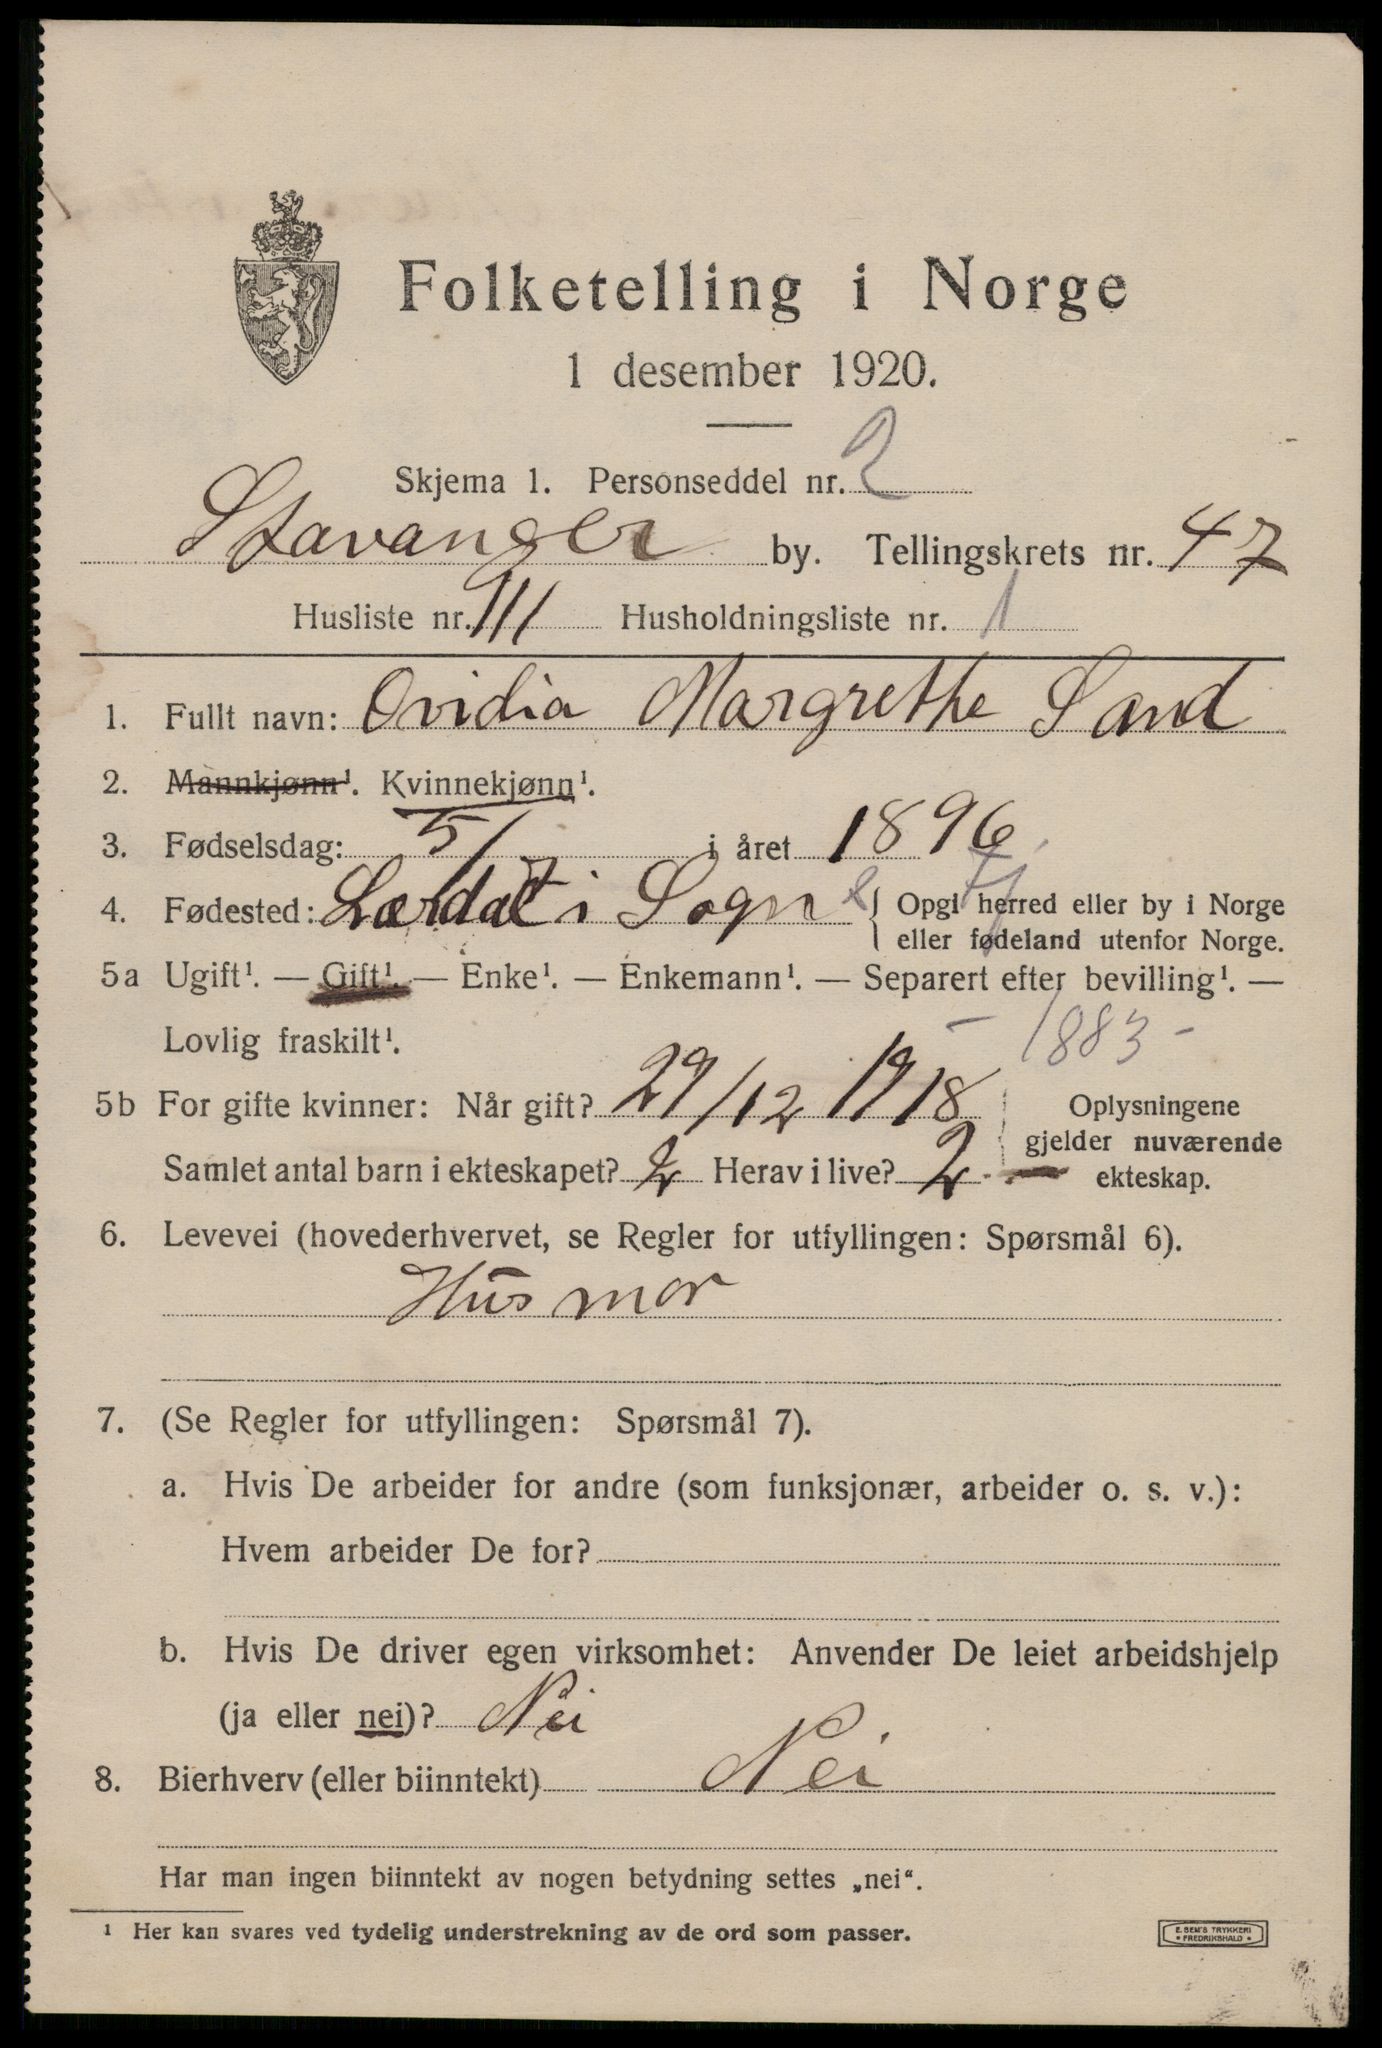 Folketelling i Norge
1 desember 1920.
Skjema 1. Personseddel nr. 2
Stavanger by. Tellingskrets nr. 47
Husliste nr. 111 Husholdningsliste nr. 1
1. Fullt navn: Ovidia Margrethe Sand
2. Mannkjønn¹. Kvinnekjønn¹.
3. Fødselsdag: 5/ i året 1896
4. Fødested: Lærdal i Sogn { Opgi herred eller by i Norge
eller fødeland utenfor Norge.
5a Ugift¹. — Gift¹. — Enke¹. — Enkemann¹. — Separert efter bevilling¹. —
Lovlig fraskilt¹.
– 1883 –
5b For gifte kvinner: Når gift? 29/12 1918 Oplysningene
gjelder nuværende
Samlet antal barn i ekteskapet? 2 Herav i live? 2 ekteskap.
6. Levevei (hovederhvervet, se Regler for utfyllingen: Spørsmål 6).
Husmor
7. (Se Regler for utfyllingen: Spørsmål 7).
a. Hvis De arbeider for andre (som funksjonær, arbeider o. s. v.):
Hvem arbeider De for?
b. Hvis De driver egen virksomhet: Anvender De leiet arbeidshjelp
(ja eller nei)? Nei
8. Bierhverv (eller biinntekt) Nei
Har man ingen biinntekt av nogen betydning settes „nei“.
¹ Her kan svares ved tydelig understrekning av de ord som passer.
E. SEM'S TRYKKERI
• FREDRIKSHALD •